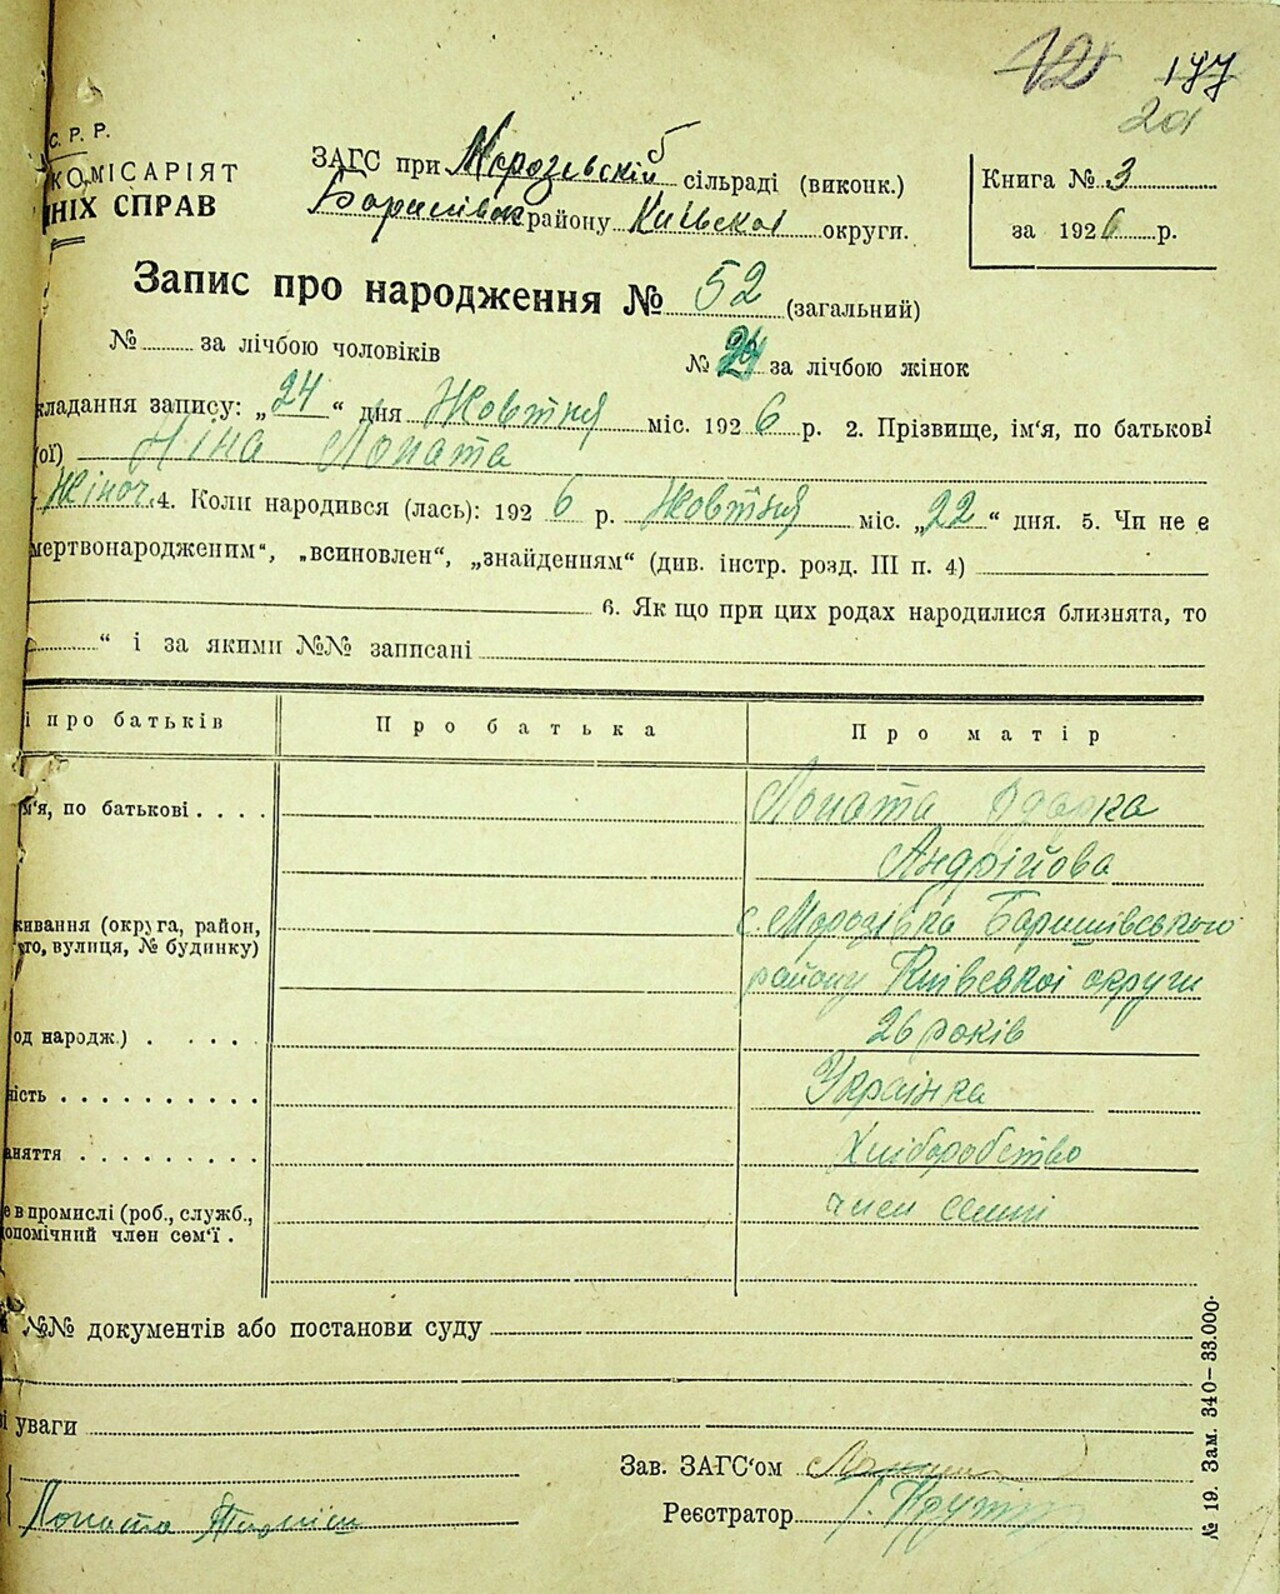 12 177
20
С. Р. Р.
КОМІСАРІЯТ
НІХ СПРАВ
ЗАГС при Морозівській сільраді (виконк.)
Баришівськ району Київської округи.
Книга № 3
за 1926 р.
Запис про народження № 52 (загальний)
№ за лічбою чоловіків № за лічбою жінок
кладання запису: „24“ дня Жовтня міс. 1926 р. 2. Прізвище, ім'я, по батькові
(ої) Ніна Лопата
Жіноч. 4. Коли народився (лась): 1926 р. Жовтня міс. „22“ дня. 5. Чи не є
мертвонародженим“, „всиновлен“, „знайденням“ (див. інстр. розд. III п. 4)
6. Як що при цих родах народилися близнята, то
“ і за якими №№ записані
і про батьків Про батька Про матір
м'я, по батькові . . . . Лопата Одарка
Андрійова
живання (округа, район, с. Морозівка Баришівського
то, вулиця, № будинку) району Київської округи
од народж.) . . . . . 26 років
ність . . . . . . . . . . Українка
аняття . . . . . . . . . Хліборобство
е в промислі (роб., служб., член семьї
опомічний член сем'ї .
№№ документів або постанови суду
і уваги
Зав. ЗАГС'ом
Лопата
Реєстратор
№ 19. Зам. 340—33.000.